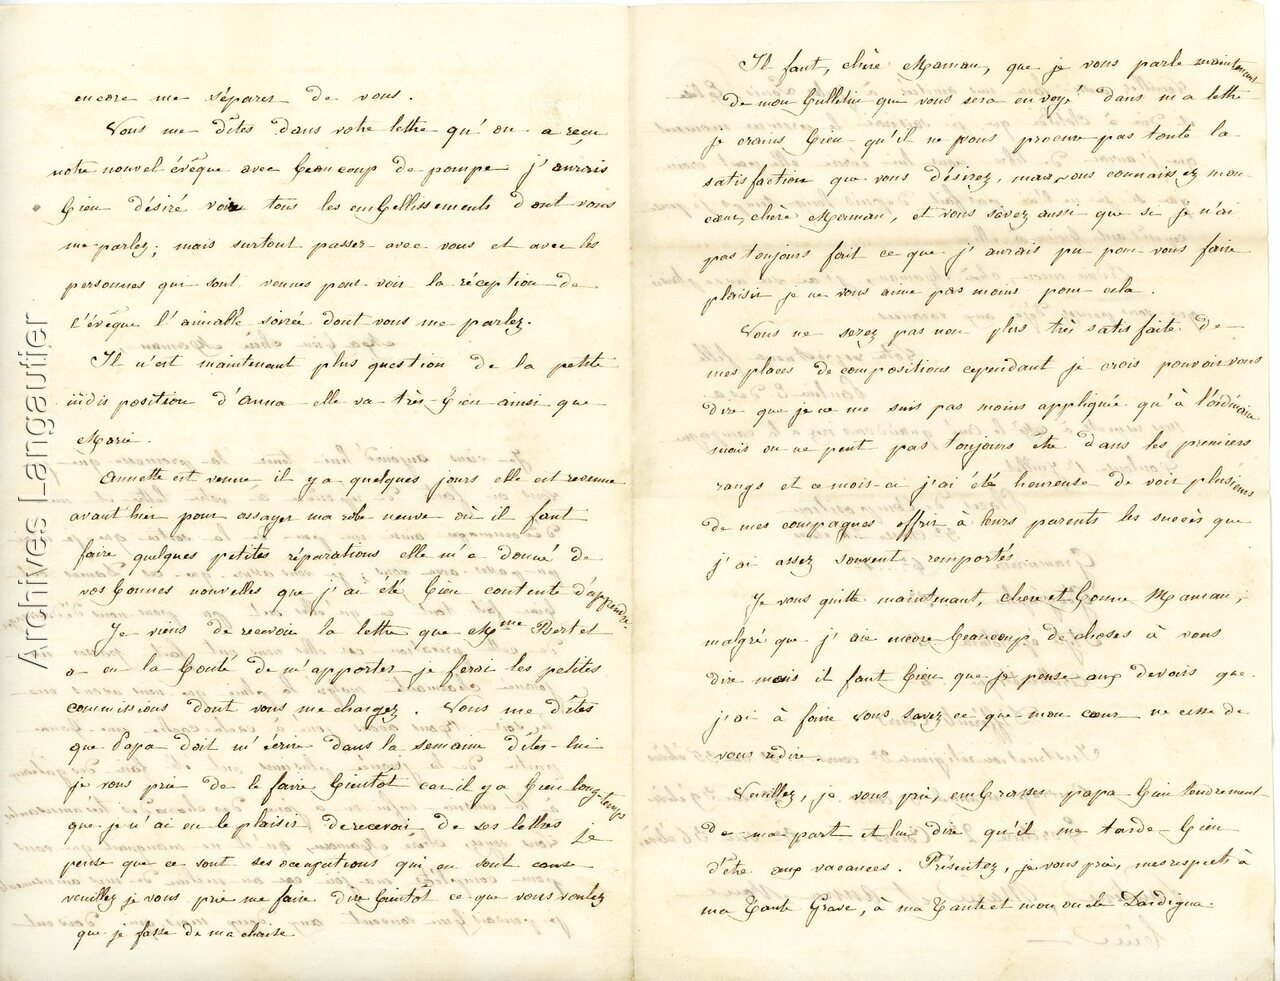 encore me séparer de vous.
Vous me dîtes dans votre lettre qu'on a reçu
notre nouvel évêque avec beaucoup de pompe j'aurais
bien désiré voir tous les embellissements dont vous
me parlez; mais surtout passer avec vous et avec les
personnes qui sont venues pour voir la réception de
l'évêque l'aimable soirée dont vous me parlez.
Il n'est maintenant plus question de la petite
indisposition d'Anna elle va très-bien ainsi que
Marie.
Annette est venue il y a quelques jours elle est revenue
avant hier pour essayer ma robe neuve où il faut
faire quelques petites réparations elle m'a donné de
vos bonnes nouvelles que j'ai été bien contente d'apprendre.
Je viens de recevoir la lettre que Mme Bertet
a eu la bonté de m'apporter je ferai les petites
commissions dont vous me chargez. Vous me dîtes
que Papa doit m'écrire dans la semaine dîtes-lui
je vous prie de le faire bientôt car il y a bien long-temps
que je n'ai eu le plaisir de recevoir de ses lettres je
pense que ce sont ses occupations qui en sont cause
veuillez je vous prie me faire dire bientôt ce que vous voulez
que je fasse de ma chaise
Il faut, chère Maman, que je vous parle maintenant
de mon bulletin que vous sera envoyé dans ma lettre
je crains bien qu'il ne vous procure pas toute la
satisfaction que vous désirez, mais vous connaissez mon
cœur, chère Maman, et vous savez aussi que si je n'ai
pas toujours fait ce que j'aurais pu pour vous faire
plaisir je ne vous aime pas moins pour cela.
Vous ne serez pas non plus très satisfaite de
mes places de compositions cependant je crois pouvoir vous
dire que je ne me suis pas moins appliquée qu'à l'ordinaire
mais on ne peut pas toujours être dans les premiers
rangs et ce mois-ci j'ai été heureuse de voir plusieurs
de mes compagnes offrir à leurs parents les succès que
j'ai assez souvent remportés.
Je vous quitte maintenant, chère et bonne Maman,
malgré que j'aie encore beaucoup de choses à vous
dire mais il faut bien que je pense aux devoirs que
j'ai à faire vous savez ce que mon cœur ne cesse de
vous redire.
Veuillez, je vous prie, embrasser papa bien tendrement
de ma part et lui dire qu'il me tarde bien
d'être aux vacances. Présentez, je vous prie, mes respects à
ma Tante Grave, à ma Tante et mon oncle Dardigna.
Archives Langautier